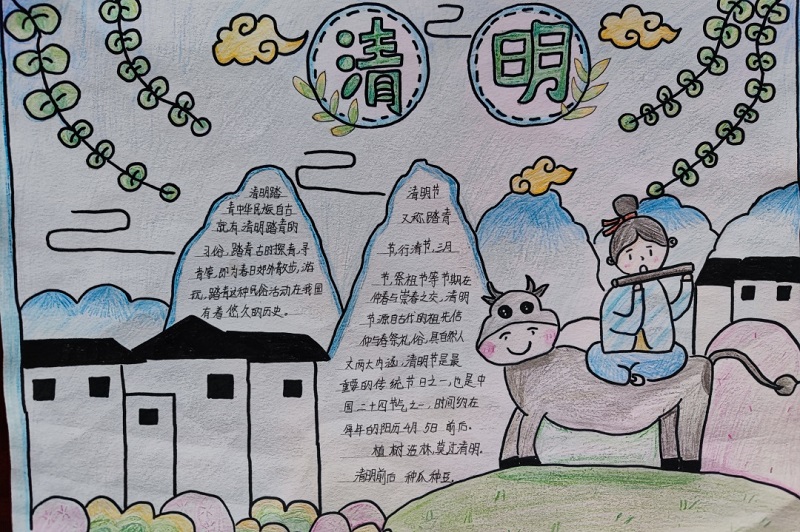 清明
清明踏
青中华民族自古
就有清明踏青的
习俗，踏青古时探春，寻
春等，即为春日郊外散步，游
玩，踏青这种民俗活动在我国
有着悠久的历史。
清明节
又称踏青
节，行清节，三月
节，祭祖节等节期在
仲春与暮春之交，清明
节源自古代的祖先信
仰与春祭礼俗，具自然人
文两大内涵，清明节是最
重要的传统节日之一，也是中
国二十四节气之一，时间约在
每年的阳历4月5日前后。
植树造林，莫过清明。
清明前后 种瓜种豆。